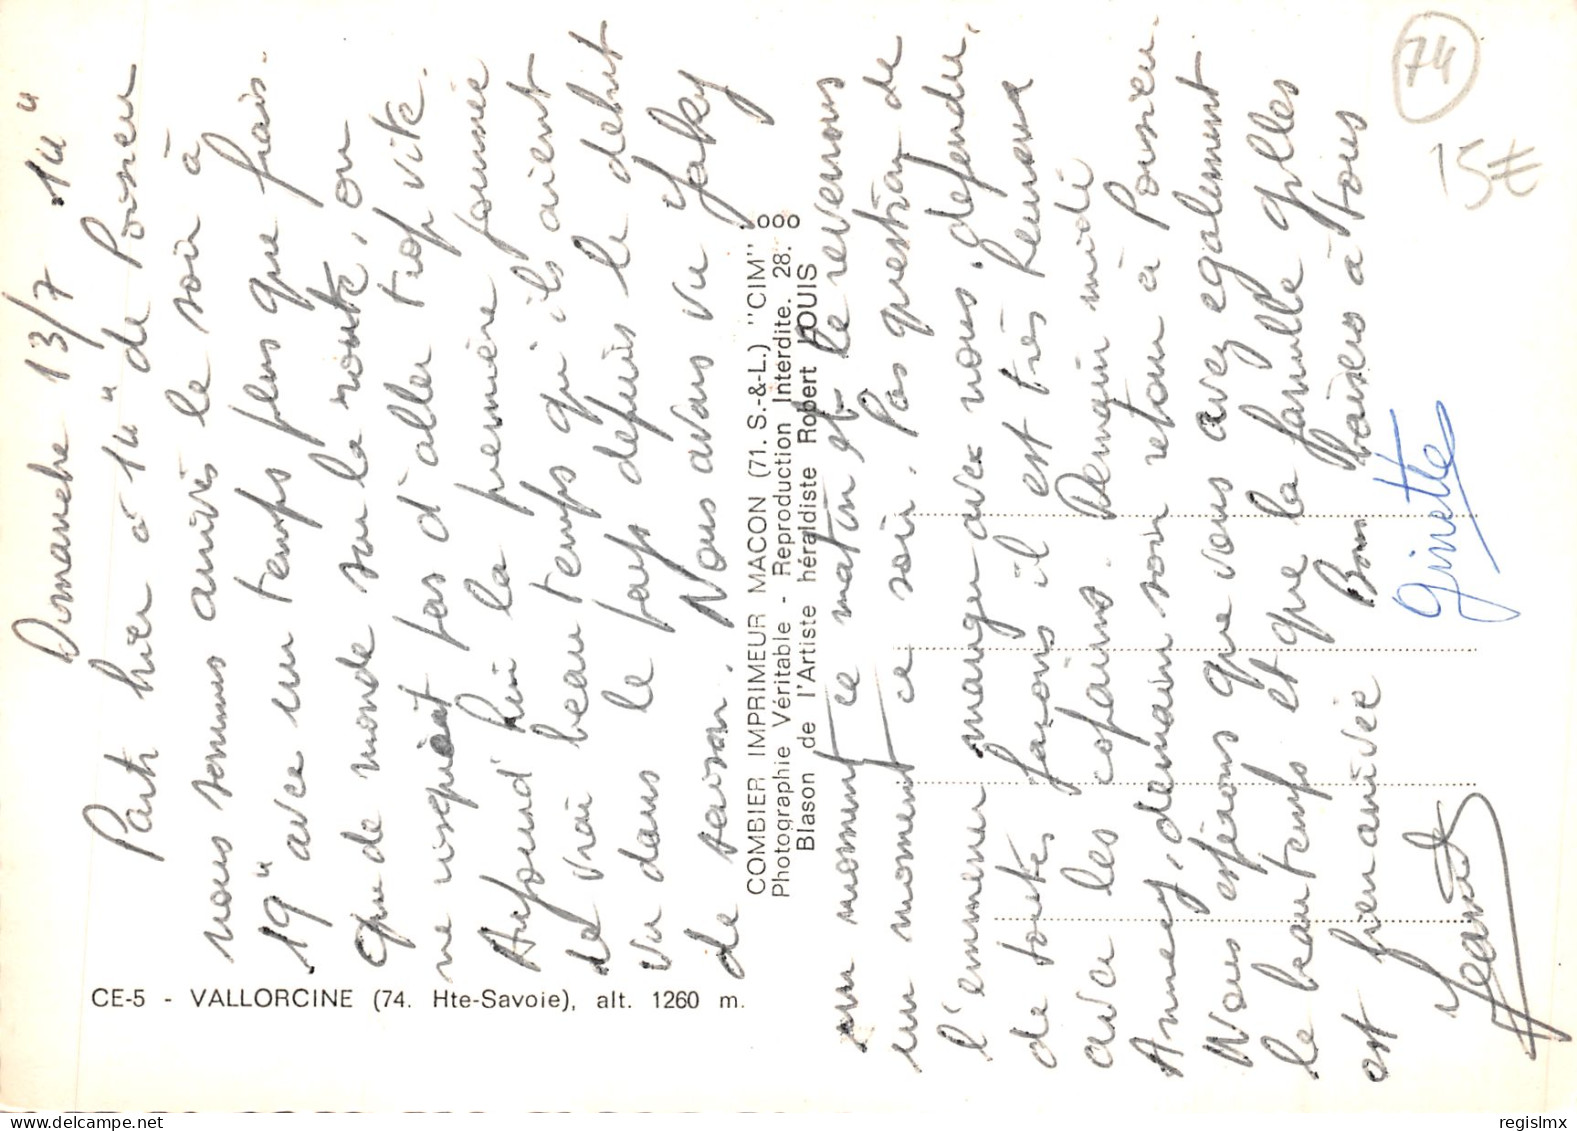 Domanche 13/7 14"
Parti hier à 14" de Poisieu
nous sommes arrivés le soir à
19" avec un temps plus que frais.
que de monde sur la route, on
ne risquait pas d'aller trop vite.
Aujourd'hui la première journée
de vrai beau temps qu'ils aient
vu dans le pays depuis le debut
de saison. Nous avons vu Jaky
un moment ce matin et le revenous
un moment ce soir. Pas question de
l'emmener manger avec nous. defendu,
de toutes façons il est très
avec les copains. Demain midi
Annecy, demain soir retour à Poisieu.
Nous espérons que vous avez egalement
le beau temps et que la famille Gilles
est bien arrivée Bons baisers à tous
Ginette
CE-5 - VALLORCINE (74. Hte-Savoie), alt. 1260 m.
COMBIER IMPRIMEUR MACON (71. S.-&-L.) "CIM"
Photographie Véritable - Reproduction Interdite. 28.
Blason de l'Artiste héraldiste Robert LOUIS
74
15€
regislmx